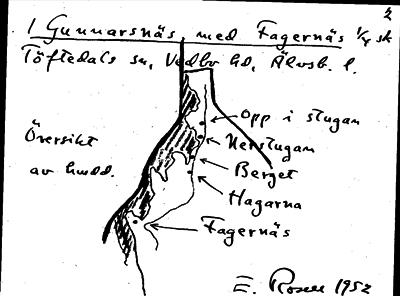 2
1 Gunnarsnäs med Fagernäs 1/4 sk
Töftedals sn, Vedbo hd, Älvsb. l.
Opp i stugan
Översikt
Nerstugan
av hmd.
Berget
Hagarna
Fagernäs
E. Rosen 1952